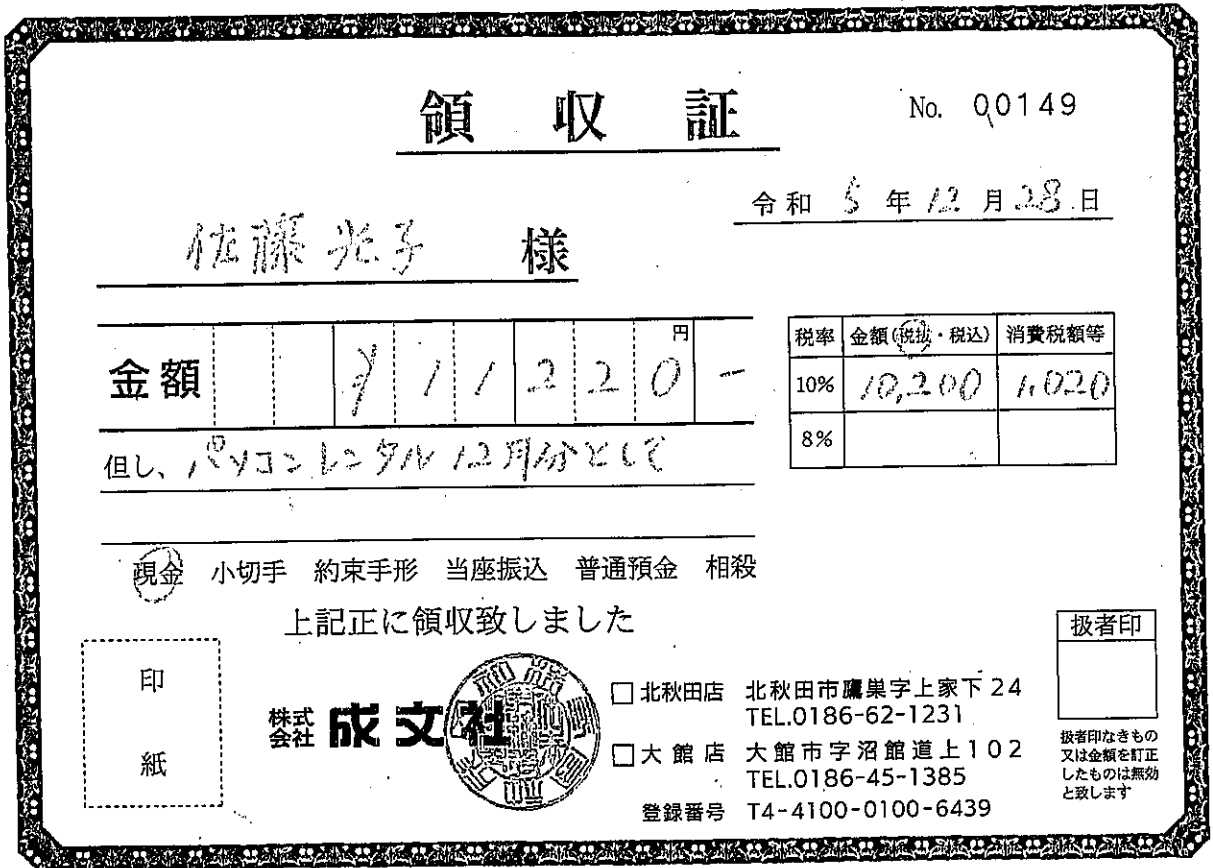 領収証
No. 00149
令和 5 年 12 月 28 日
佐藤光子 様
金額 ¥11220円-
税率 金額(税抜・税込) 消費税額等
10% 10,200 1,020
8%
但し、パソコンレンタル12月分として
現金 小切手 約束手形 当座振込 普通預金 相殺
上記正に領収致しました
印紙
株式会社 成文社
□北秋田店 北秋田市鷹巣字上家下24
TEL.0186-62-1231
□大館店 大館市字沼館道上102
TEL.0186-45-1385
登録番号 T4-4100-0100-6439
扱者印
扱者印なきもの
又は金額を訂正
したものは無効
と致します